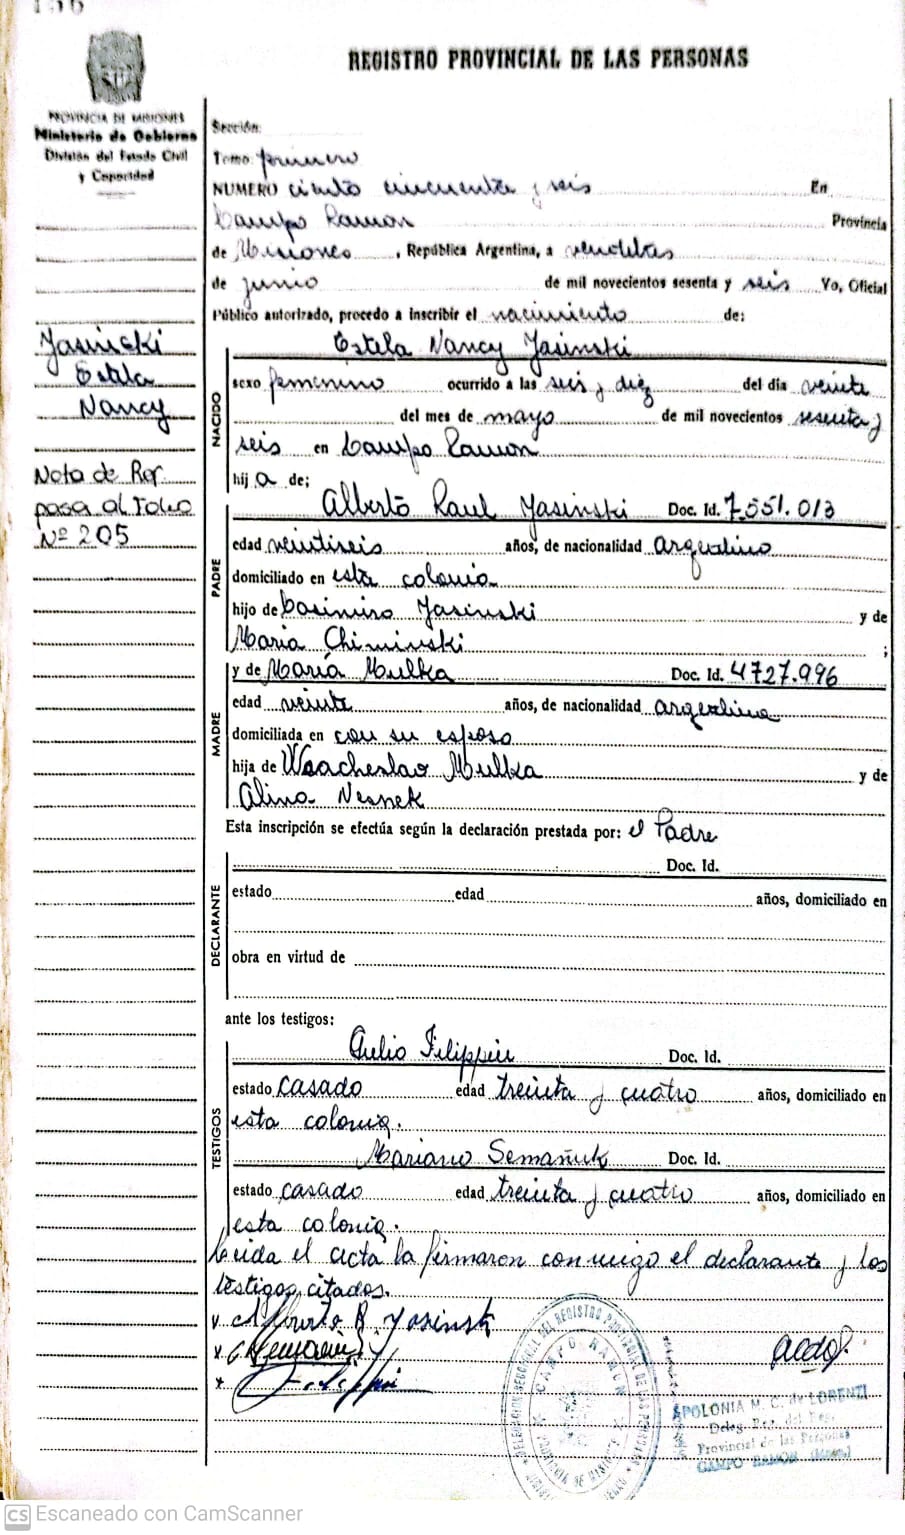 156
REGISTRO PROVINCIAL DE LAS PERSONAS
PROVINCIA DE MISIONES
Ministerio de Gobierno
División del Estado Civil
y Capacidad
Yasinski
Estela
Nancy
Nota de Ref
pasa al Folio
Nº 205
Sección:
Tomo: primero
NUMERO ciento cincuenta y seis En
Campo Ramon Provincia
de Misiones, República Argentina, a veintitres
de junio de mil novecientos sesenta y seis Yo, Oficial
Público autorizado, procedo a inscribir el nacimiento de:
NACIDO
Estela Nancy Yasinski
sexo femenino ocurrido a las seis y diez del día veinte
del mes de mayo de mil novecientos sesenta y
seis en Campo Ramon
hija de;
PADRE
Alberto Raul Yasinski Doc. Id. 7.551.013
edad veintiseis años, de nacionalidad argentino
domiciliado en esta colonia
hijo de Casimiro Yasinski y de
Maria Chiminski ;
MADRE
y de María Mulka Doc. Id. 4727.996
edad veinte años, de nacionalidad argentina
domiciliada en con su esposo
hija de Waacheslao Mulka y de
Alina
Esta inscripción se efectúa según la declaración prestada por: el Padre
DECLARANTE
Doc. Id.
estado edad años, domiciliado en
obra en virtud de
ante los testigos:
TESTIGOS
Julio Filippin Doc. Id.
estado casado edad treinta y cuatro años, domiciliado en
esta colonia.
Mariano Semañuk Doc. Id.
estado casado edad treinta y cuatro años, domiciliado en
esta colonia.
Leida el acta la firmaron conmigo el declarante y los
testigos citados.
Alberto R. Yasinski
DELEGACION SECCIONAL DEL REGISTRO PROVINCIAL DE LAS PERSONAS
CAMPO RAMON
PROVINCIA DE MISIONES
APOLONIA M. C. de LORENZI
Deleg. Reg. del Reg.
Provincial de las Personas
CAMPO RAMON (Mnes.)
CS Escaneado con CamScanner